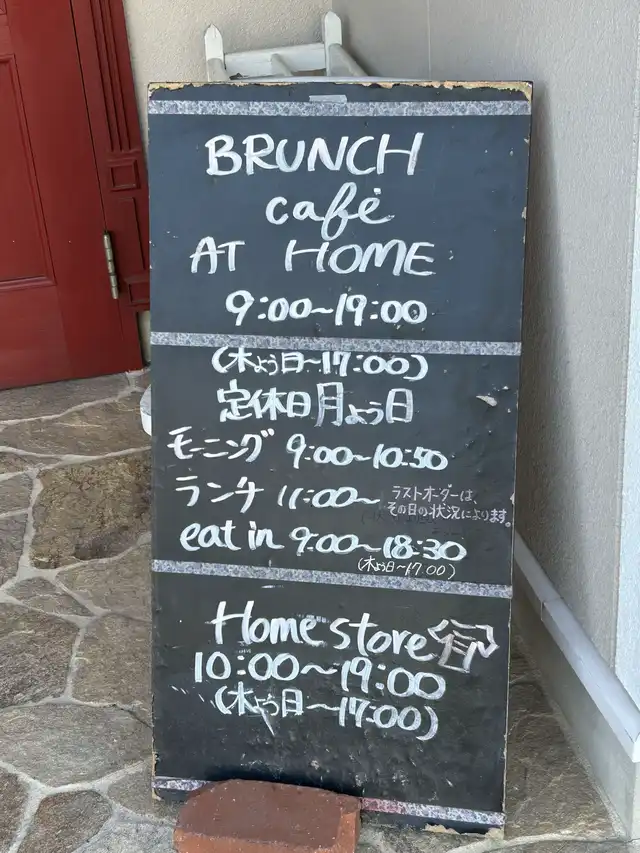 BRUNCH
café
AT HOME
9:00~19:00
(木よう日~17:00)
定休日 月よう日
モーニング 9:00~10:50
ランチ 11:00~ ラストオーダーは、
その日の状況によります。
eat in 9:00~18:30
(木よう日~17:00)
Home store
10:00~19:00
(木よう日~17:00)